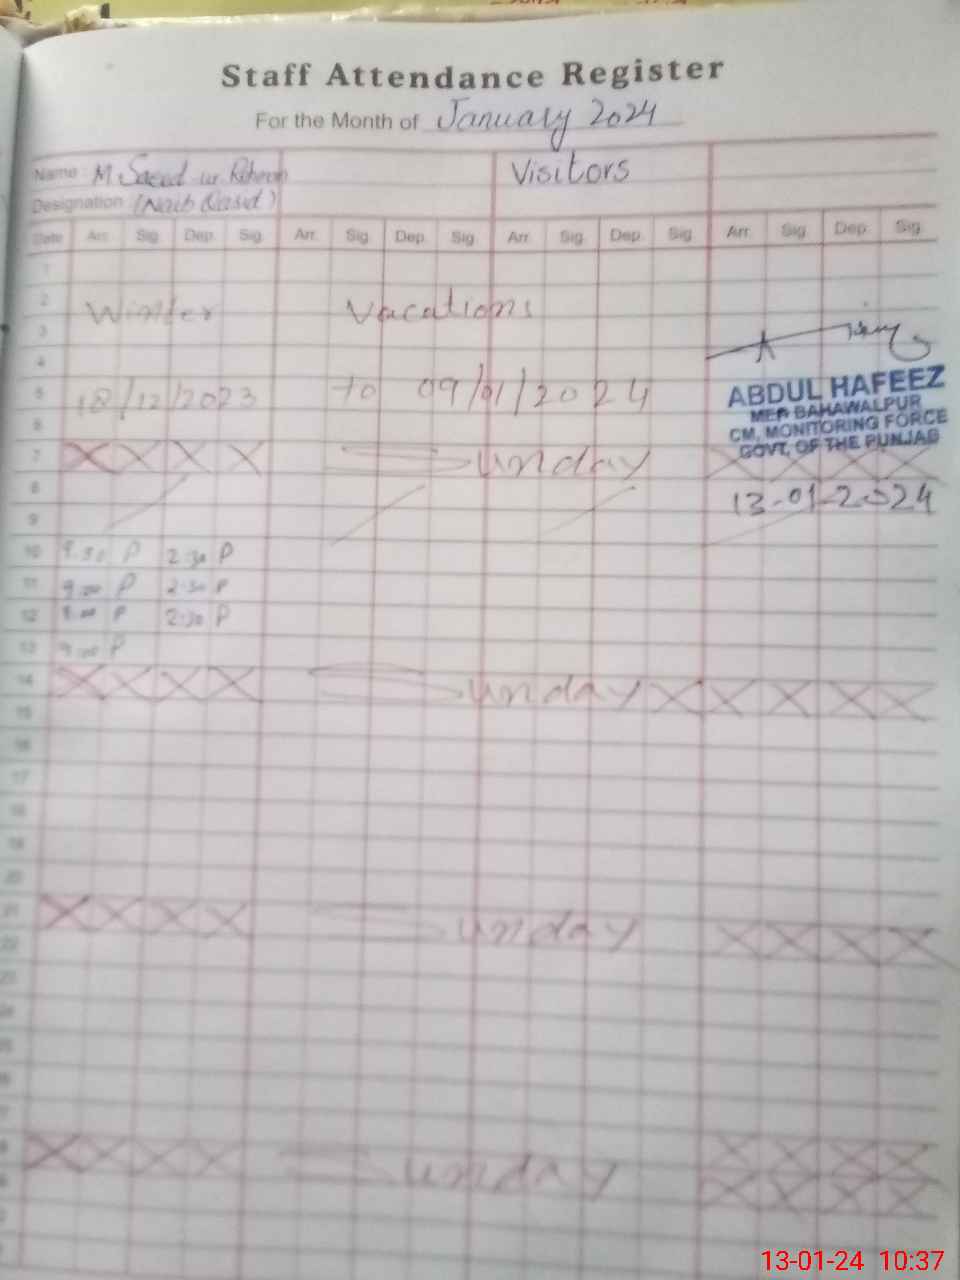 Staff Attendance Register
For the Month of January 2024
Name M Saeed-ur-Rehman Visitors
Designation (Naib Qasid)
Date Arr. Sig. Dep. Sig. Arr. Sig. Dep. Sig. Arr. Sig. Dep. Sig. Arr. Sig. Dep. Sig.
1
2 Winter Vacations
3
4
5 18/12/2023 to 09/01/2024
ABDUL HAFEEZ
MEA BAHAWALPUR
CM, MONITORING FORCE
GOVT. OF THE PUNJAB
6
7 Sunday
8 13-01-2024
9
10 P 2:30 P
11 9:00 P 2:30 P
12 8:00 P 2:30 P
13 9:00 P
14 Sunday
15
16
17
18
19
20
21 Sunday
22
23
Sunday
13-01-24 10:37